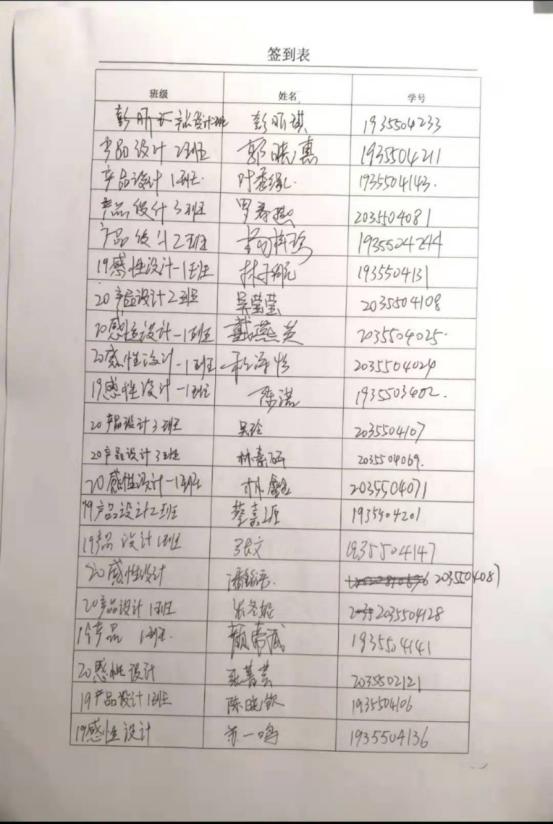 签到表
班级 姓名 学号
设计班 彭 琪 1935504233
产品设计2班 郭晓惠 1935504211
产品设计1班 叶 1935504143
产品设计3班 罗 203504081
产品设计2班 1935504244
19感性设计-1班 林 1935504131
20产品设计2班 吴莹莹 2035504108
20感性设计-1班 戴燕英 2035504025
20感性设计-1班 2035504024
19感性设计-1班 陈诺 1935503402
20产品设计3班 吴玲 2035504107
20产品设计3班 林 2035504069
20感性设计-1班 林 2035504071
19产品设计2班 蔡嘉 1935504201
19产品设计1班 文 1935504147
20感性设计 潘 2035504087
20产品设计1班 2035504128
19产品1班 颜 1935504141
20感性设计 张菁芸 2035502121
19产品设计1班 陈晓 193504106
19感性设计 一鸣 1935504136